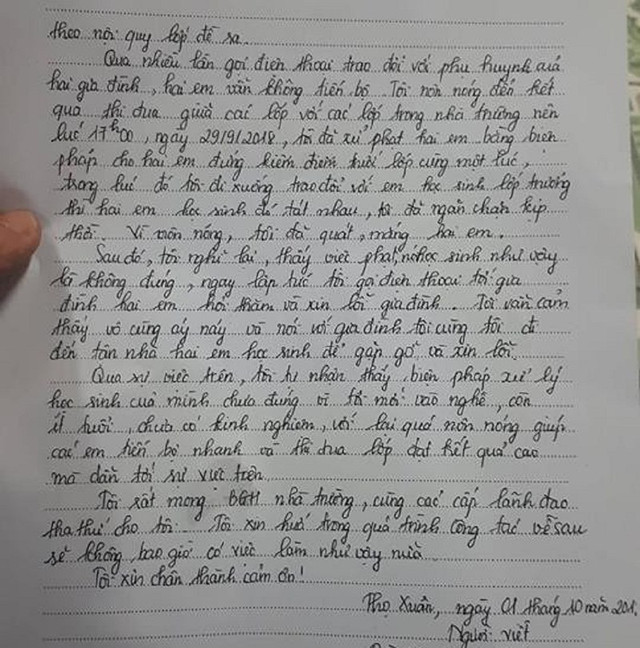 theo nội quy lớp đề ra.
Qua nhiều lần gọi điện thoại trao đổi với phụ huynh của
hai gia đình, hai em vẫn không tiến bộ. Tôi nôn nóng đến kết
quả thi đua giữa các lớp với các lớp trong nhà trường nên
lúc 17h00, ngày 29/9/2018, tôi đã xử phạt hai em bằng biện
pháp cho hai em đứng kiểm điểm trước lớp cùng một lúc,
trong lúc đó tôi đi xuống trao đổi với em học sinh lớp trưởng
thì hai em học sinh đó tát nhau, tôi đã ngăn chặn kịp
thời. Vì nôn nóng, tôi đã quát, mắng hai em.
Sau đó, tôi nghĩ lại, thấy việc phạt học sinh như vậy
là không đúng, ngay lập tức tôi gọi điện thoại tới gia
đình hai em hỏi thăm và xin lỗi gia đình. Tôi vẫn cảm
thấy vô cùng áy náy và nói với gia đình tôi cùng tôi đi
đến tận nhà hai em học sinh để gặp gỡ và xin lỗi.
Qua sự việc trên, tôi tự nhận thấy biện pháp xử lý
học sinh của mình chưa đúng vì tôi mới vào nghề, còn
ít tuổi, chưa có kinh nghiệm, với lại quá nôn nóng giúp
các em tiến bộ nhanh và thi đua lớp đạt kết quả cao
mà dẫn tới sự việc trên.
Tôi rất mong BGH nhà trường, cùng các cấp lãnh đạo
tha thứ cho tôi. Tôi xin hứa trong quá trình công tác về sau
sẽ không bao giờ có việc làm như vậy nữa.
Tôi xin chân thành cảm ơn!
Thọ Xuân, ngày 01 tháng 10 năm 201
Người viết